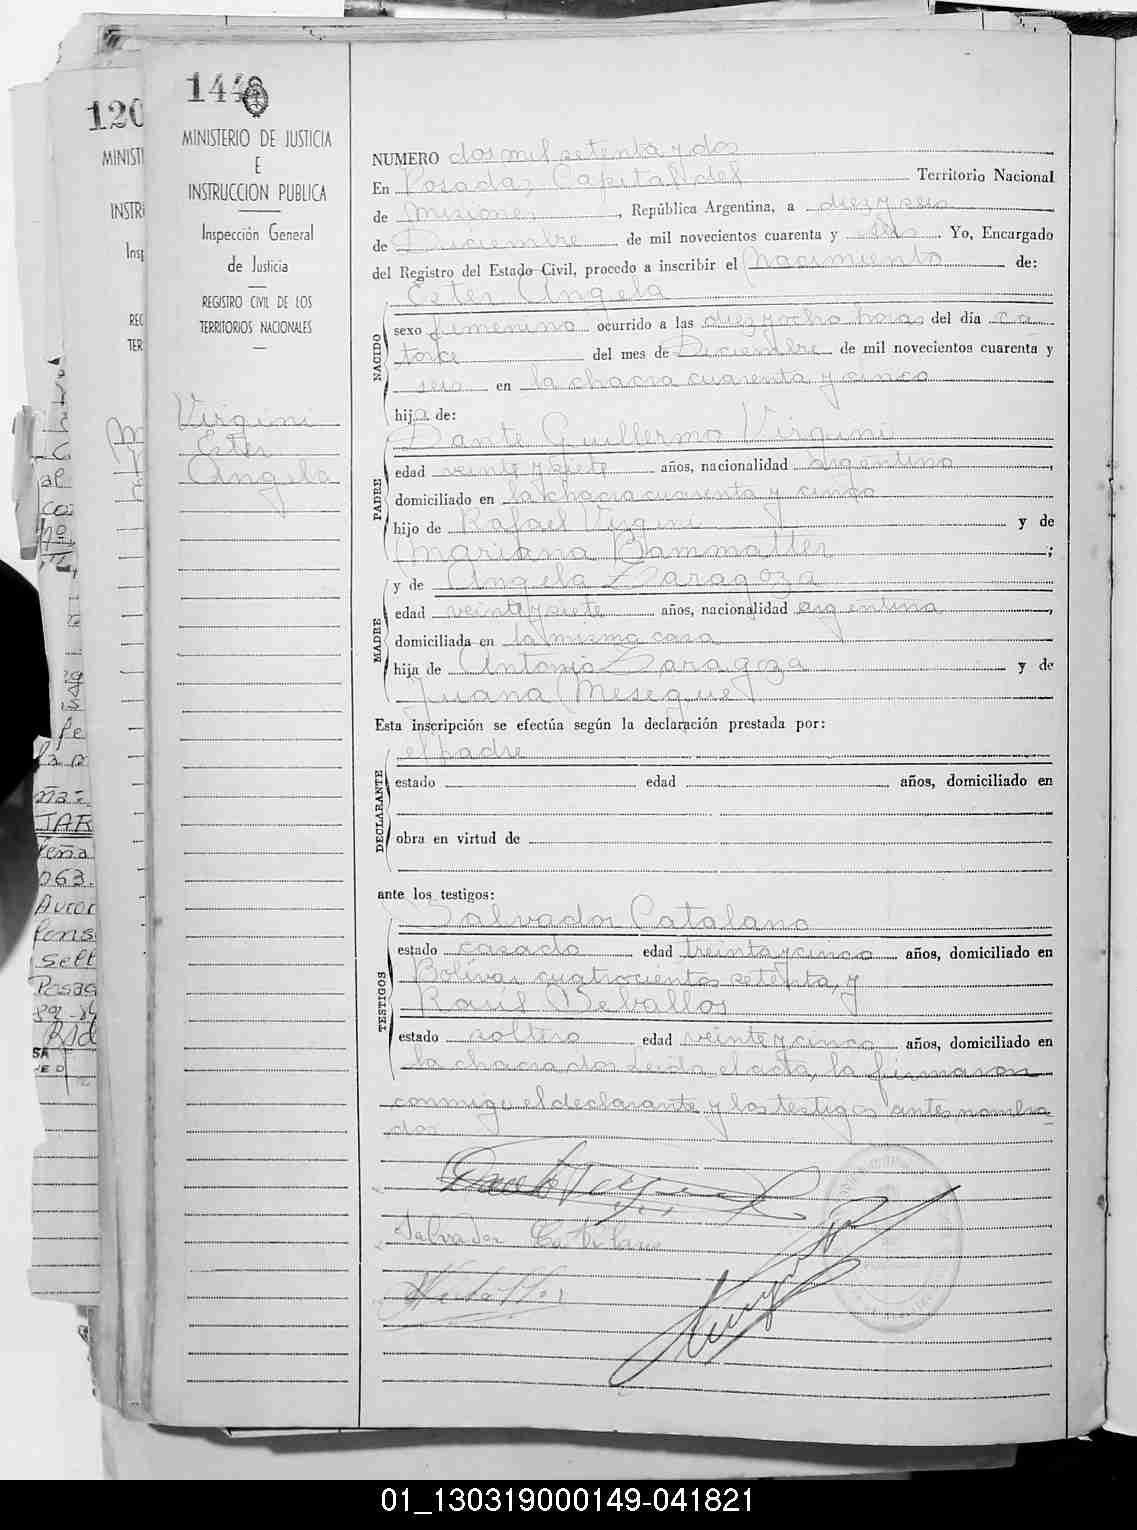 144
MINISTERIO DE JUSTICIA
E
INSTRUCCION PUBLICA
Inspección General
de Justicia
REGISTRO CIVIL DE LOS
TERRITORIOS NACIONALES
Virguini
Ester
Angela
120
MINIST
INSTR
Insp
REC
TER
NUMERO dos mil setenta y dos
En Posadas Capital del Territorio Nacional
de Misiones, República Argentina, a diez y seis
de Diciembre de mil novecientos cuarenta y seis. Yo, Encargado
del Registro del Estado Civil, procedo a inscribir el Nacimiento de:
Ester Angela
NACIDO
sexo femenino ocurrido a las diez y ocho horas del día ca
torce del mes de Diciembre de mil novecientos cuarenta y
seis en la chacra cuarenta y cinco
hija de:
Dante Guillermo Virguini
PADRE
edad veinte y siete años, nacionalidad argentino,
domiciliado en la chacra cuarenta y cinco
hijo de Rafael Virguini y de
Mariana Bammatter;
MADRE
y de Angela Zaragoza
edad veinte y siete años, nacionalidad argentina,
domiciliada en la misma casa
hija de Antonio Zaragoza y de
Juana Meseguer
Esta inscripción se efectúa según la declaración prestada por:
el padre
DECLARANTE
estado edad años, domiciliado en
obra en virtud de
ante los testigos:
Salvador Catalano
TESTIGOS
estado casado edad treinta y cinco años, domiciliado en
Bolívar cuatrocientos setenta, y
Raúl Ceballos
estado soltero edad veinte y cinco años, domiciliado en
la chacra dos leída el acta, la firmaron
conmigo el declarante y los testigos antes nombra
dos
Salvador Catalano
01_130319000149-041821